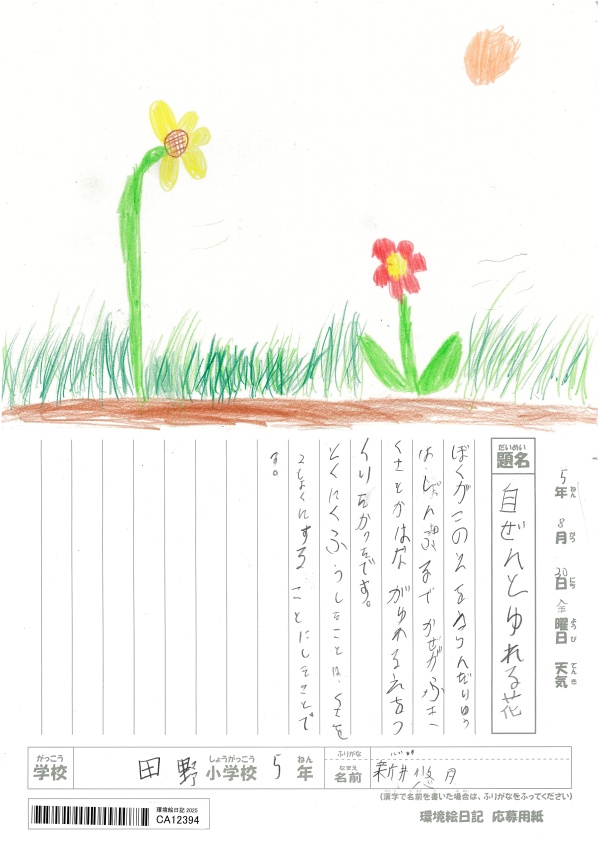 5年 8月 30日 金曜日 天気
ねん がつ にち ようび てんき
だいめい
題名
自ぜんとゆれる花
ぼくがこのえをえらんだりゆう
は、しぜん るまでかぜがふき
くさとかはながゆれるえをつ
くりたかったです。
とくにくふうしたことは、くさを
2しょくにすることにしたことで
す。
がっこう しょうがっこう ねん ふりがな
学校 田野 小学校 5 年
なまえ
名前 新井悠月
(漢字で名前を書いた場合は、ふりがなをふってください)
環境絵日記 2025
CA12394
環境絵日記 応募用紙